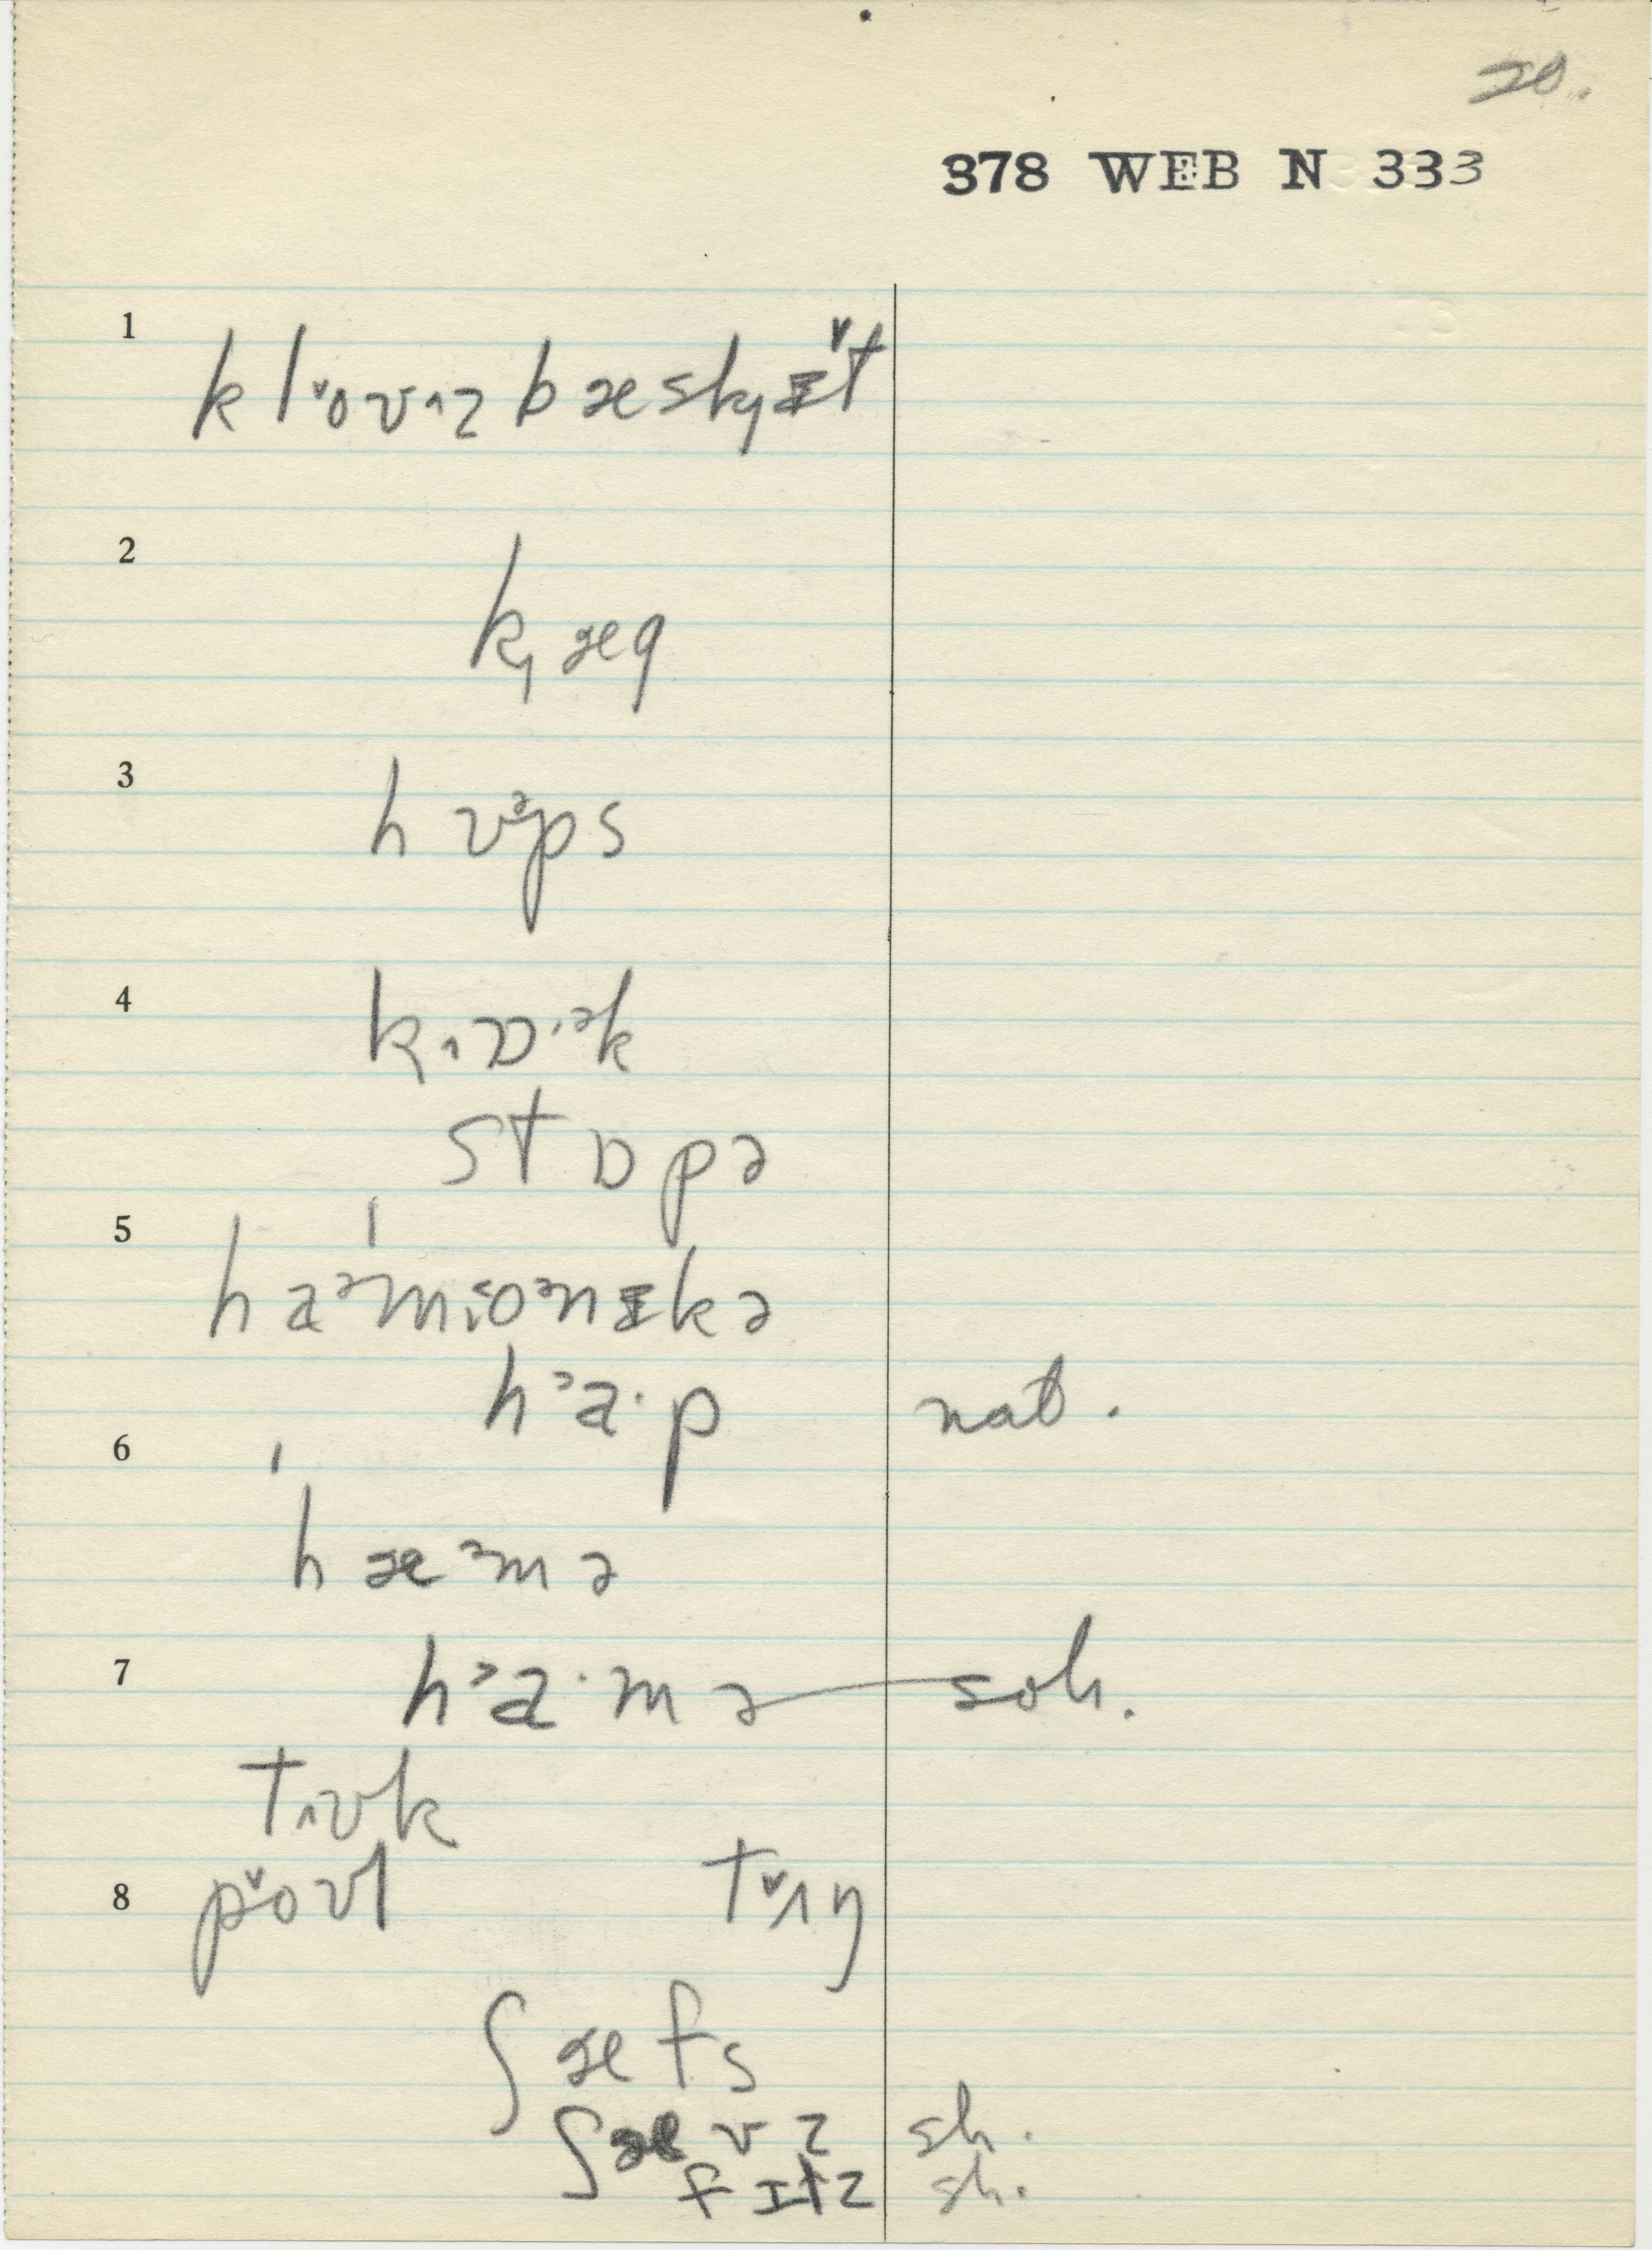 20.
378 WEB N 333
1
klˇoʊɪzbæskɪ̌t
2
kæg
3
hʊᵊps
4
kɒˑᵊk
stɒpə
5
haᵊmɪoᵊnɪkə
hᵊaˑp nat.
6
hæᵊmə
7
hᵊaˑmə soh.
tʊk
8
pˇoʊl tˇʌŋ
ʃæfs
ʃævz sh.
fɪtz sh.